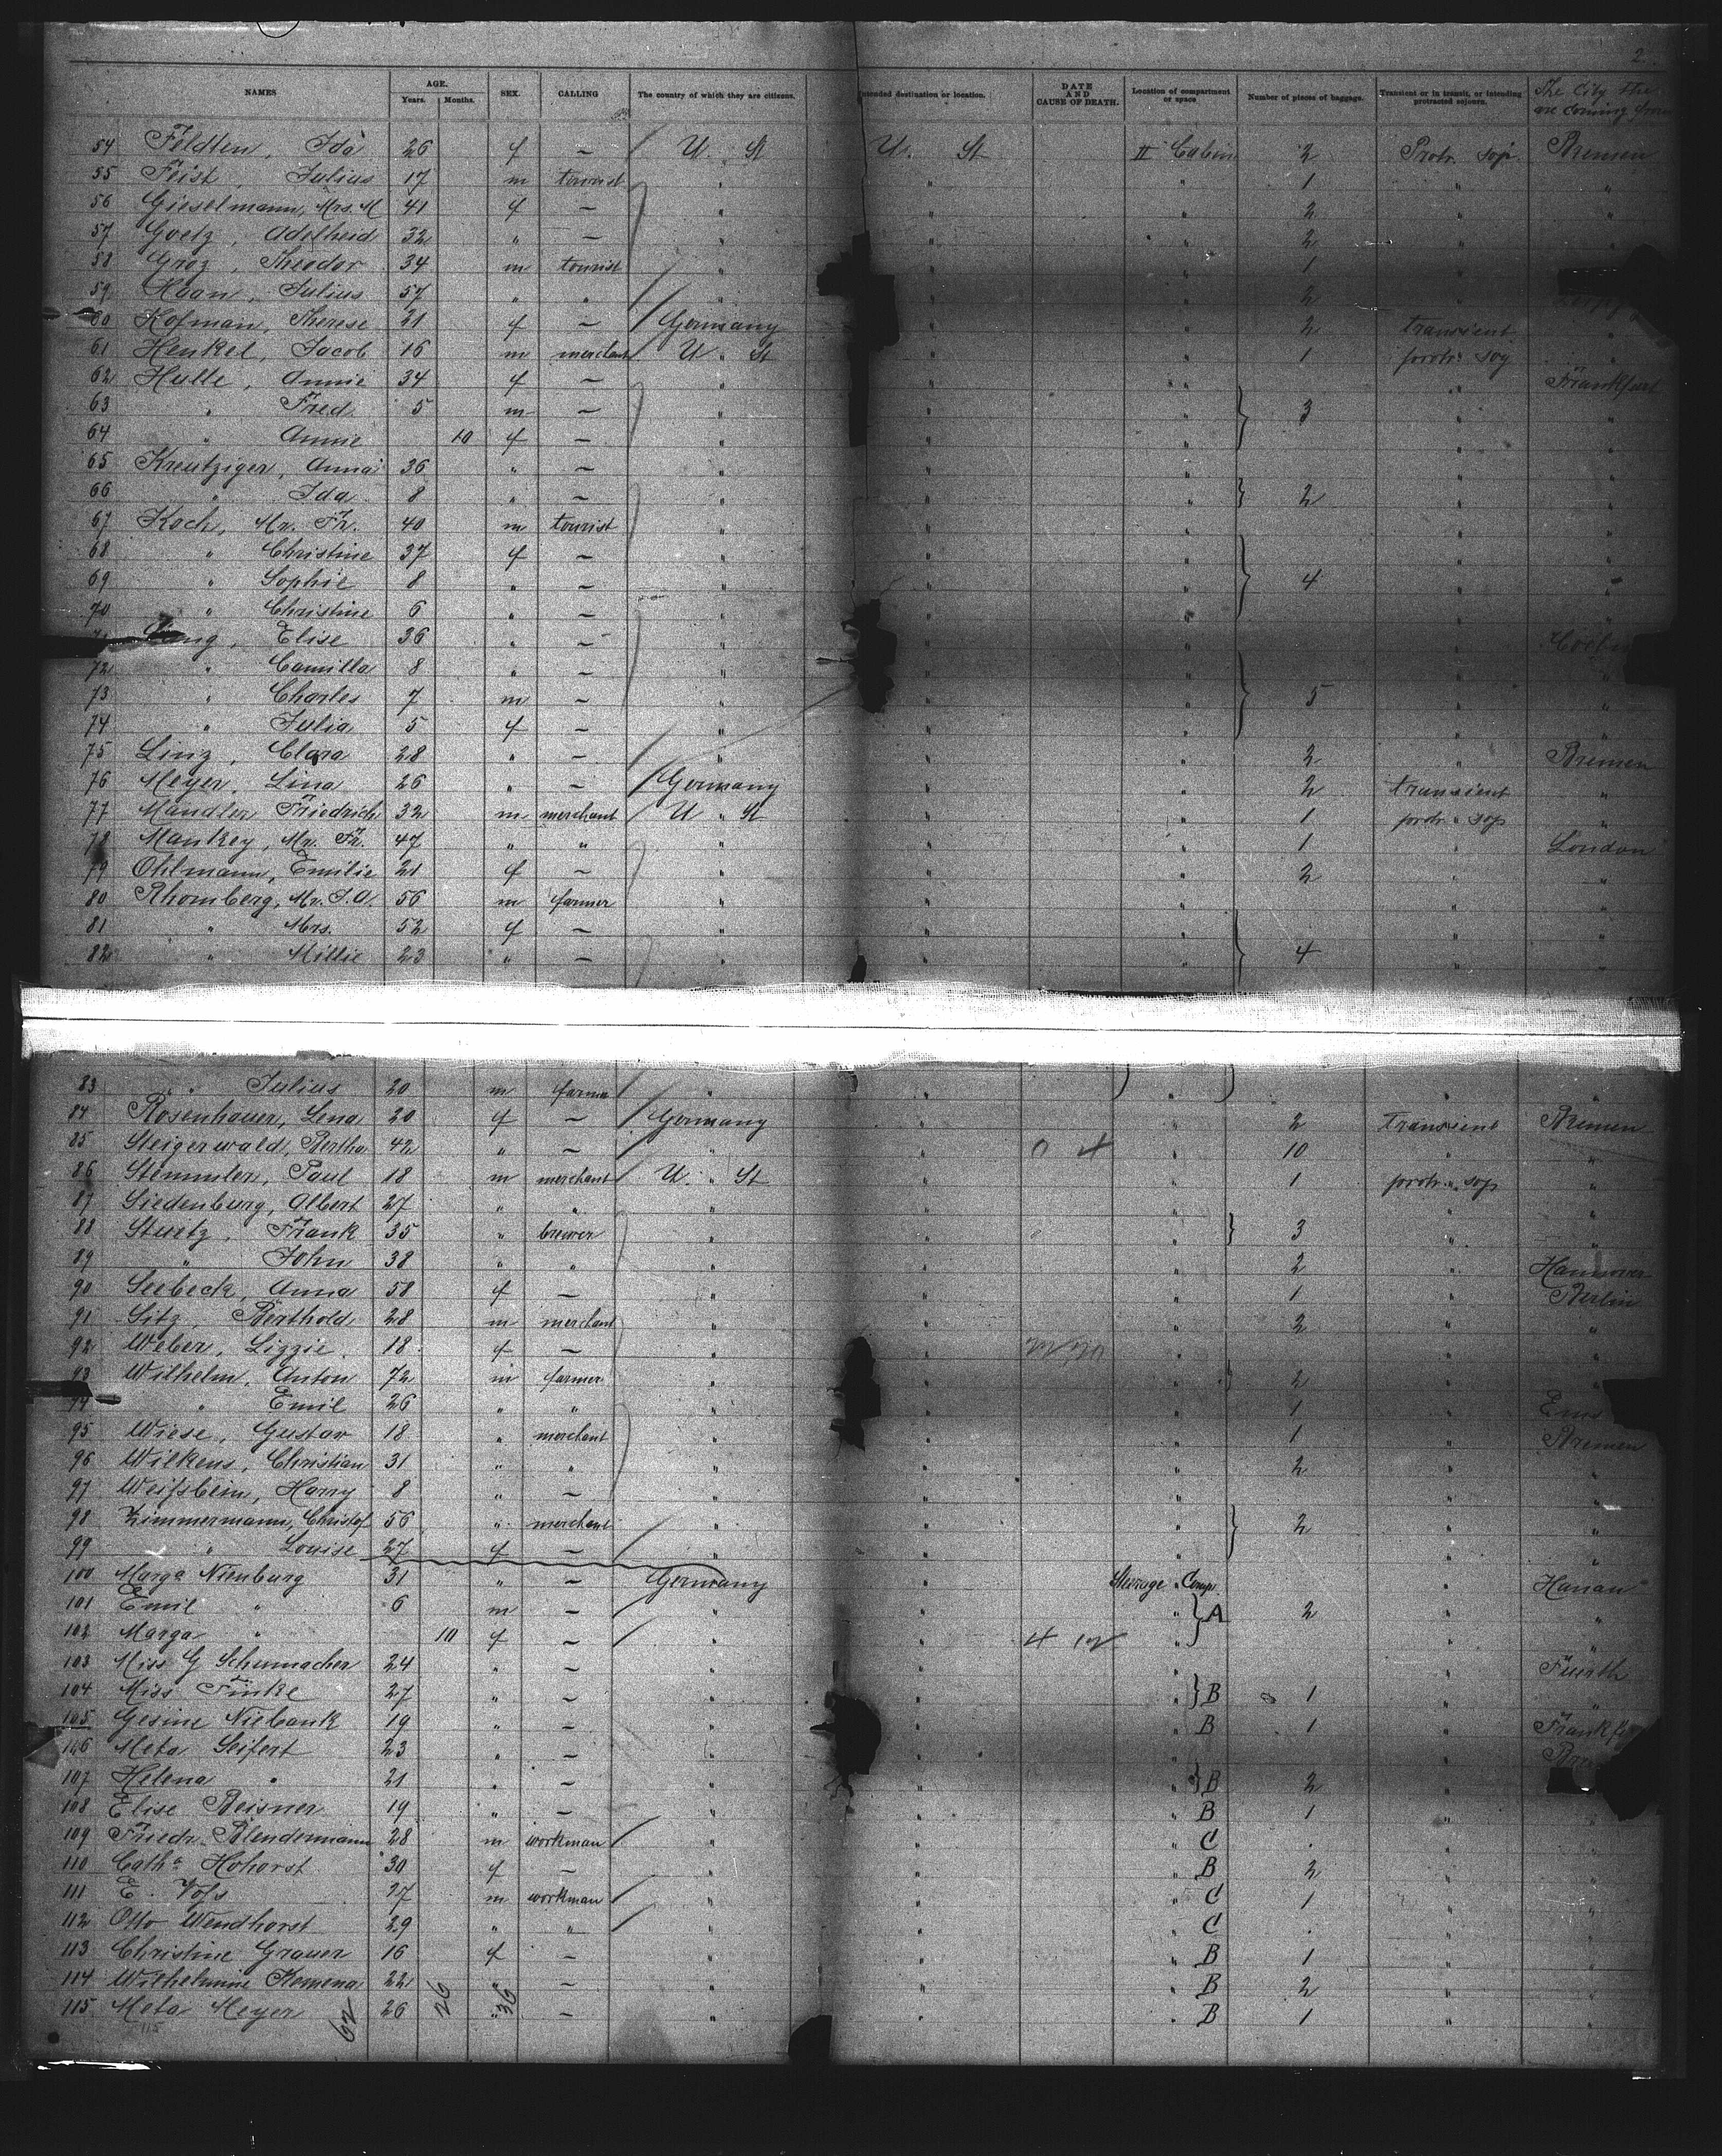 2
NAMES AGE. Years. Months. SEX. CALLING The country of which they are citizens. Intended destination or location. DATE AND CAUSE OF DEATH. Location of compartment or space Number of pieces of baggage. Transient or in transit, or intending protracted sojourn. The City the are coming from
54 Feldten, Ida 26 f – U. St U. St II Cabin 2 Protr. soj. Bremen
55 Feist, Julius 17 m tourist " " " 1 " "
56 Gieselmann, Mrs. M 41 f – " " " 2 " "
57 Goetz, Adelheid 32 " – " " " 2 "
58 Groz, Theodor 34 m tourist " " " 1
59 Haan, Julius 57 " " " " " 2
60 Hofman, Therese 21 f – Germany " " 2 transient "
61 Henkel, Jacob 16 m merchant U. St " " 1 protr. soj "
62 Hulle, Annie 34 f – " " " " Frankfurt
63 " Fred 5 m – " " " 3 " "
64 " Annie 10 f – " " " " "
65 Kreutziger, Anna 36 " – " " " " "
66 " Ida 8 " – " " " 2 " "
67 Koch, Mr. Fr. 40 m tourist " " " " "
68 " Christine 37 f – " " " " "
69 " Sophie 8 " – " " " 4 " "
70 " Christine 6 " – " " " " "
71 Elise 36 " – " " " "
72 " Camilla 8 " – " " " " "
73 " Charles 7 m – " " " 5 " "
74 " Julia 5 f – " " " " "
75 Linz, Clara 28 " – " " " 2 " Bremen
76 Meyer, Lina 26 " – Germany " " 2 transient "
77 Mandler Friedrich 32 m merchant U. St " " 1 protr. soj "
78 Mankey, Mr. Fr. 47 " " " " " 1 " London
79 Ohlmann, Emilie 21 f – " " " 2 " "
80 Rhomberg, Mr. J.A. 56 m farmer " " " " "
81 " Mrs. 52 f – " " " " "
82 " Millie 23 " – " " " 4 " "
83 " Julius 20 m farmer " " " " "
84 Rosenhauer, Lena 20 f – Germany " " 2 transient Bremen
85 Steigerwald, Bertha 42 " – " " 0 4 " 10 " "
86 Stemmler, Paul 18 m merchant U. St " " 1 protr. soj "
87 Siedenburg, Albert 27 " " " " " " "
88 Stuetz, Frank 35 " brewer " " " 3 " "
89 " John 38 " " " " " 2 " Hannover
90 Seebeck, Anna 58 f – " " " 1 " Berlin
91 Sitz, Berthold 28 m merchant " " " 2 " "
92 Weber, Lizzie 18 f – " " " " "
93 Wilhelm, Anton 72 m farmer " " " 2 " "
94 " Emil 26 " " " " " 1 " Ems
95 Wiese, Gustav 18 " merchant " " " 1 " Bremen
96 Wilkens, Christian 31 " " " " " 2 " "
97 Weifsbein, Harry 8 " – " " " " "
98 Zimmermann, Christof 56 " merchant " " " 2 " "
99 " Louise 27 f – " " " " "
100 Marga Nienburg 31 " – Germany " Steerage Comp. " Hanau
101 Emil " 6 m – " " " A 2 " "
102 Marga " 10 f – " " 4 12 " " "
103 Miss G Schumacher 24 " – " " " Fuerth
104 Miss Finke 27 " – " " " B 1 " "
105 Gesine Niebank 19 " – " " " B 1 "
106 Meta Seifert 23 " – " " "
107 Helena " 21 " – " " " B 2 "
108 Elise Reisner 19 " – " " " B 1 "
109 Friedr. Blendermann 28 m workman " " " C "
110 Cathª Hohorst 30 f – " " " B 2 " "
111 E. Vofs 17 m workman " " " C 1 " "
112 Otto Wendhorst 29 " " " " " C " "
113 Christine Grauer 16 f – " " " B 1 " "
114 Wilhelmine Kemena 22 " – " " " B 2 " "
115 Meta Meyer 26 " – " " " B 1 " "
115 62 26 36